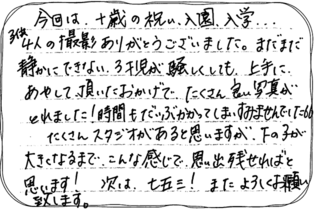 今回は、十歳の祝い、入園、入学...
3件4人の撮影ありがとうございました。まだまだ
静かにできない3才児が騒しくしても、上手に
あやして頂いたおかげで、たくさん良い写真が
とれました!時間もだいぶかかってしまいすみませんでした
たくさんスタジオがあると思いますが、下の子が
大きくなるまで、こんな感じで思い出残せればと
思います! 次は、七五三! またよろしくお願い
致します。